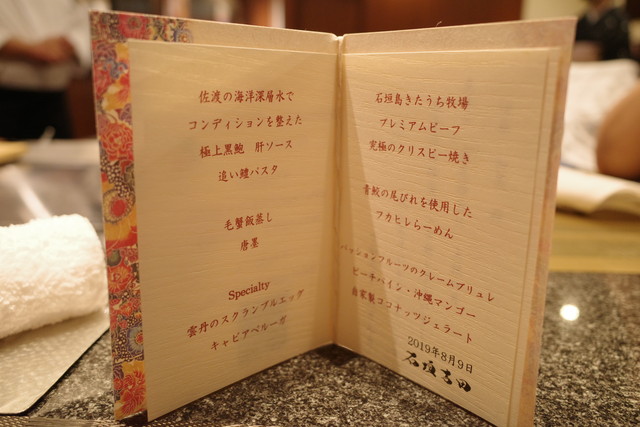 佐渡の海洋深層水で
コンディションを整えた
極上黒鮑 肝ソース
追い鱧パスタ
毛蟹飯蒸し
唐墨
Specialty
雲丹のスクランブルエッグ
キャビアベルーガ
石垣島きたうち牧場
プレミアムビーフ
究極のクリスピー焼き
青鮫の尾びれを使用した
フカヒレらーめん
パッションフルーツのクレームブリュレ
ピーチパイン・沖縄マンゴー
自家製ココナッツジェラート
2019年8月9日
石垣吉田